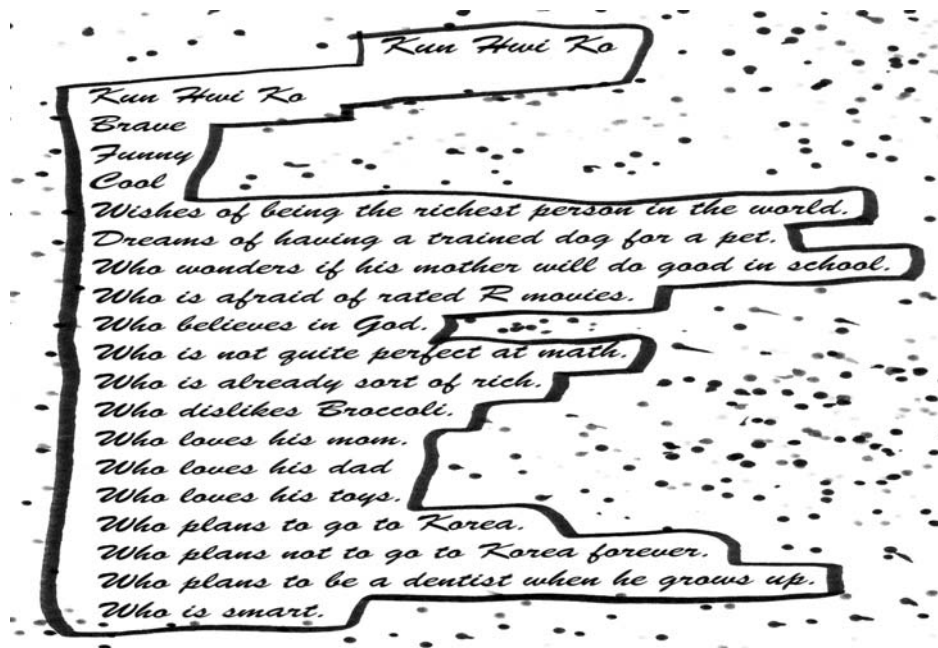 Kun Hwi Ko
Kun Hwi Ko
Brave
Funny
Cool
Wishes of being the richest person in the world.
Dreams of having a trained dog for a pet.
Who wonders if his mother will do good in school.
Who is afraid of rated R movies.
Who believes in God.
Who is not quite perfect at math.
Who is already sort of rich.
Who dislikes Broccoli.
Who loves his mom.
Who loves his dad
Who loves his toys.
Who plans to go to Korea.
Who plans not to go to Korea forever.
Who plans to be a dentist when he grows up.
Who is smart.